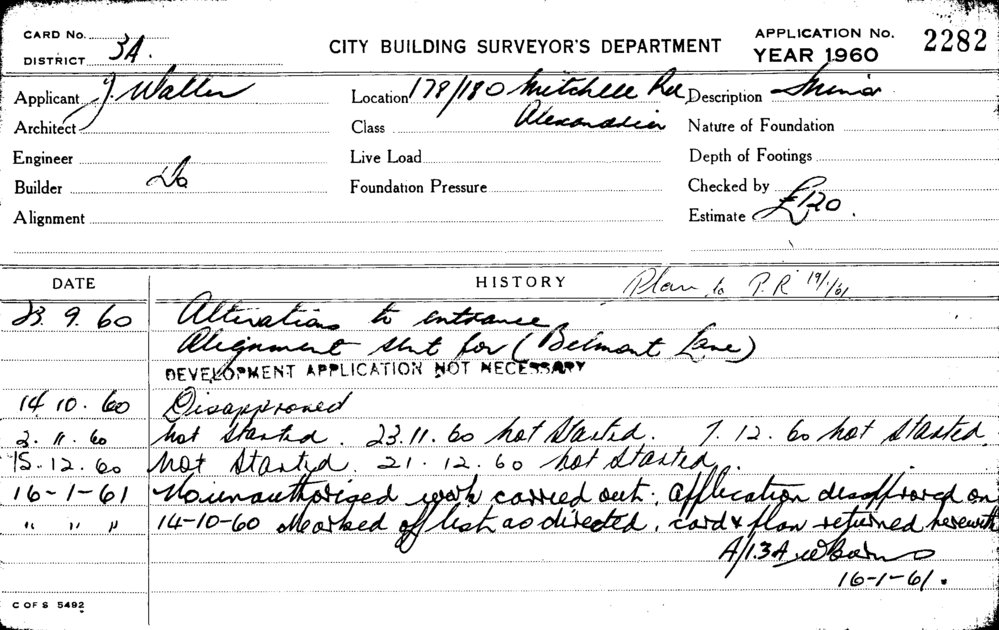 CARD No.
DISTRICT 3A.
CITY BUILDING SURVEYOR'S DEPARTMENT
APPLICATION No. 2282
YEAR 1960
Applicant J. Waller
Location 178/180 Mitchell Rd
Alexandria
Description Minor
Architect
Class
Nature of Foundation
Engineer
Live Load
Depth of Footings
Builder Do
Foundation Pressure
Checked by
Alignment
Estimate £120.
DATE
HISTORY Plan to P.R 19/1/61
23.9.60 Alterations to entrance
Alignment sht for (Belmont Lane)
DEVELOPMENT APPLICATION NOT NECESSARY
14.10.60 Disapproved
2.11.60 not started. 23.11.60 not started. 7.12.60 not started.
15.12.60 not started. 21.12.60 not started.
16-1-61 No unauthorised work carried out: application disapproved on
" " " 14-10-60 Marked off list as directed, card & plan returned herewith
16-1-61.
C OF S 5492